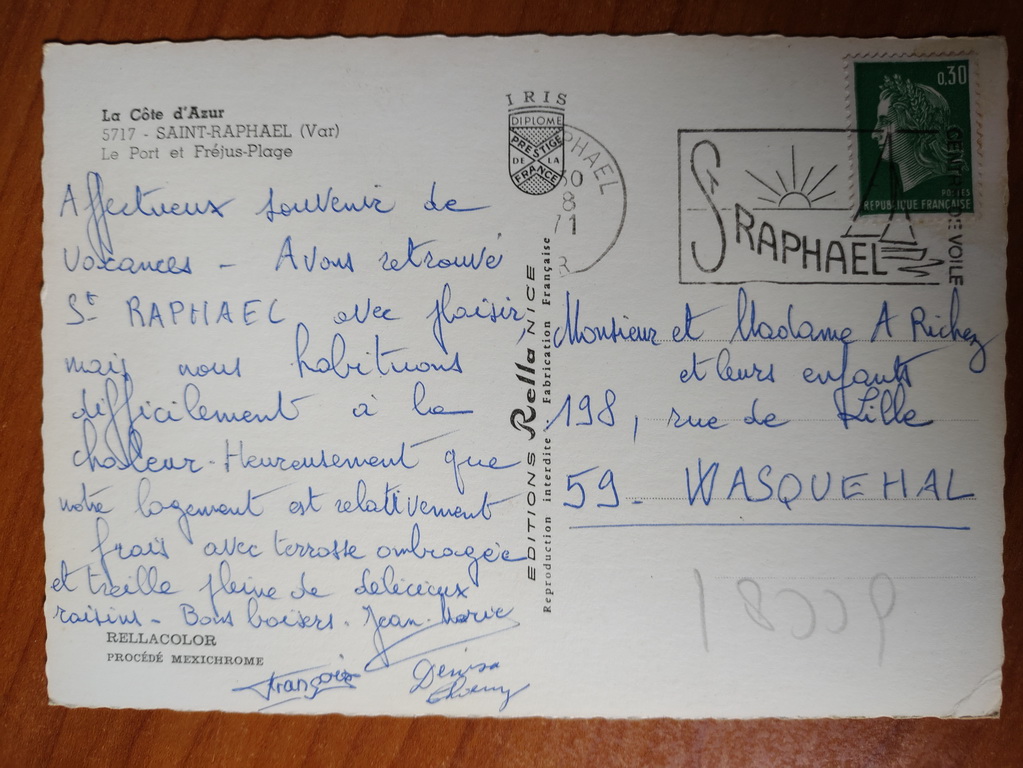 La Côte d'Azur
5717 - SAINT-RAPHAEL (Var)
Le Port et Fréjus-Plage
Affectueux souvenir de
vacances - Avons retrouvé
St RAPHAEL avec plaisir,
mais nous habituons
difficilement à la
chaleur - Heureusement que
notre logement est relativement
frais avec terrasse ombragée
et treille pleine de délicieux
raisins - Bons baisers. Jean-Marie
François
Denise
Thierry
RELLACOLOR
PROCÉDÉ MEXICHROME
IRIS
DIPLOME
PRESTIGE
DE LA
FRANCE
EDITIONS Rella NICE
Reproduction interdite - Fabrication Française
PHAEL
30
8
71
St RAPHAEL
CENTRE DE VOILE
0,30
POSTES
REPUBLIQUE FRANÇAISE
Monsieur et Madame A Richez
et leurs enfants
198, rue de Lille
59 - WASQUEHAL